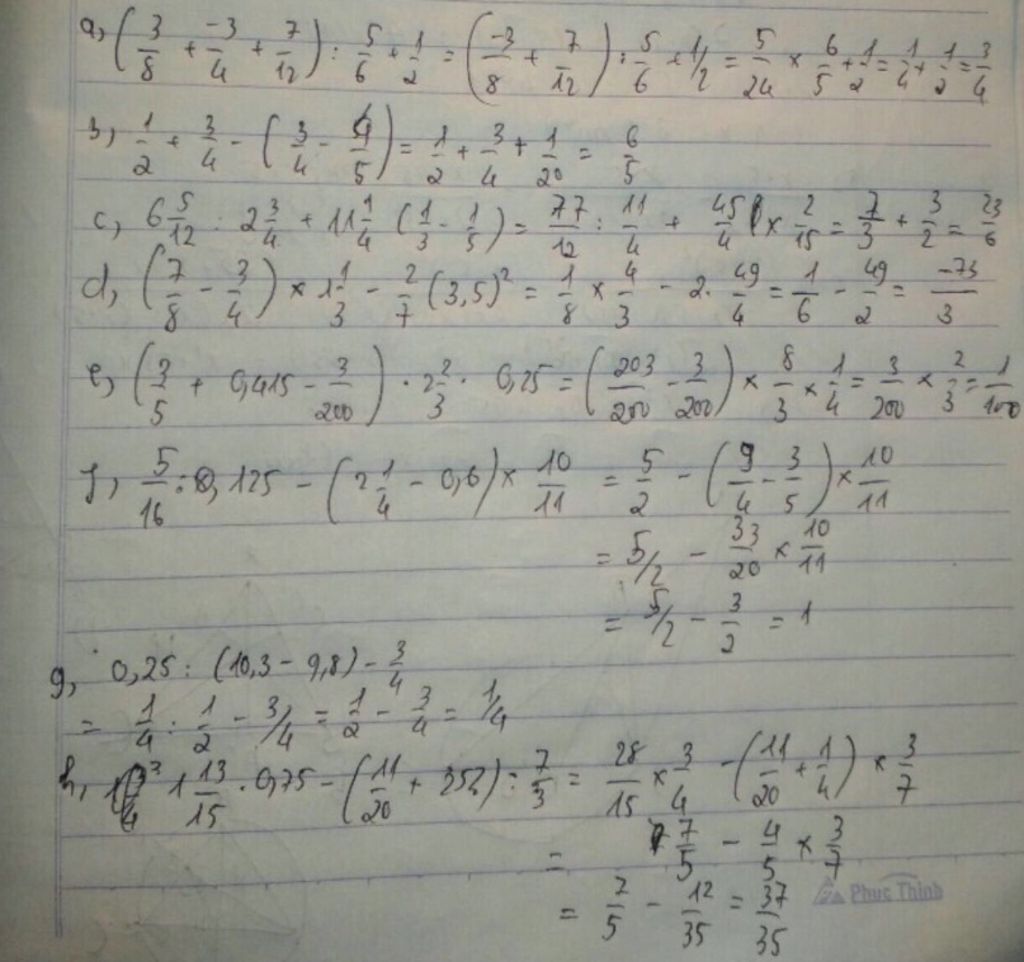 a, (3/8 + -3/4 + 7/12) : 5/6 + 1/2 = (-3/8 + 7/12) : 5/6 + 1/2 = 5/24 × 6/5 + 1/2 = 1/4 + 1/2 = 3/4
b, 1/2 + 3/4 - (3/4 - 4/5) = 1/2 + 3/4 + 1/20 = 6/5
c, 6 5/12 : 2 3/4 + 11 1/4 (1/3 - 1/5) = 77/12 : 11/4 + 45/4 × 2/15 = 7/3 + 3/2 = 23/6
d, (7/8 - 3/4) × 1 1/3 - 2/7 (3,5)² = 1/8 × 4/3 - 2. 49/4 = 1/6 - 49/2 = -73/3
e, (3/5 + 0,415 - 3/200) . 2 2/3 . 0,25 = (203/200 - 3/200) × 8/3 × 1/4 = 3/200 × 2/3 = 1/100
f, 5/16 : 0,125 - (2 1/4 - 0,6) × 10/11 = 5/2 - (9/4 - 3/5) × 10/11
= 5/2 - 33/20 × 10/11
= 5/2 - 3/2 = 1
g, 0,25 : (10,3 - 9,8) - 3/4
= 1/4 : 1/2 - 3/4 = 1/2 - 3/4 = 1/4
h, 1 13/15 . 0,75 - (11/20 + 25%) : 7/3 = 28/15 × 3/4 - (11/20 + 1/4) × 3/7
= 7/5 - 4/5 × 3/7
= 7/5 - 12/35 = 37/35
Phuc Thinh